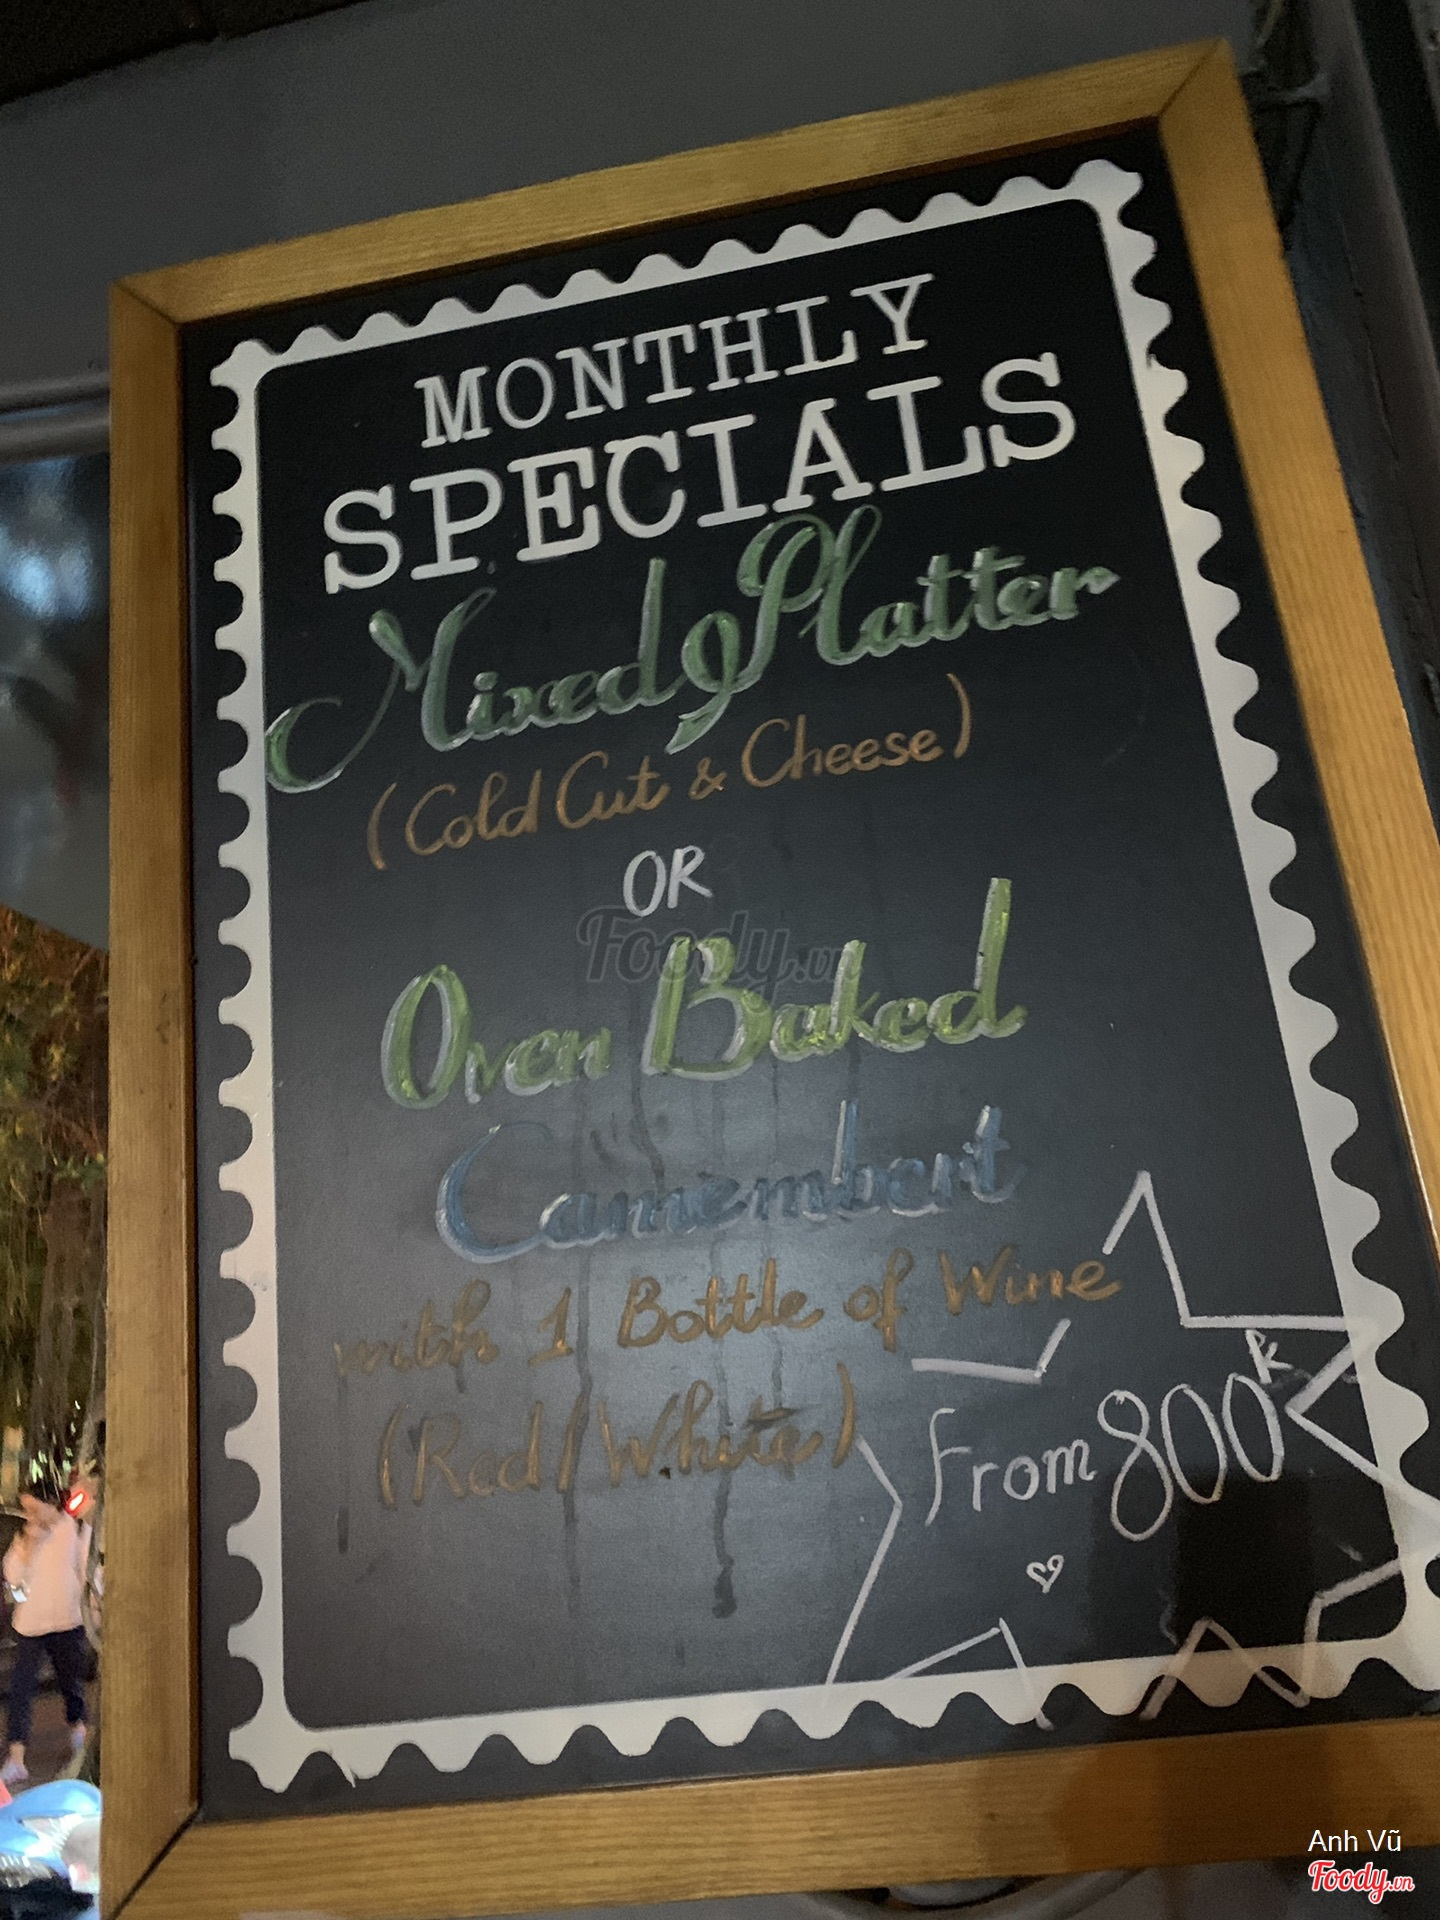 MONTHLY
SPECIALS
Mixed Platter
(Cold Cut & Cheese)
OR
Foody.vn
Oven Baked
Camembert
with 1 Bottle of Wine
(Red/White)
From 800K
Anh Vũ
Foody.vn